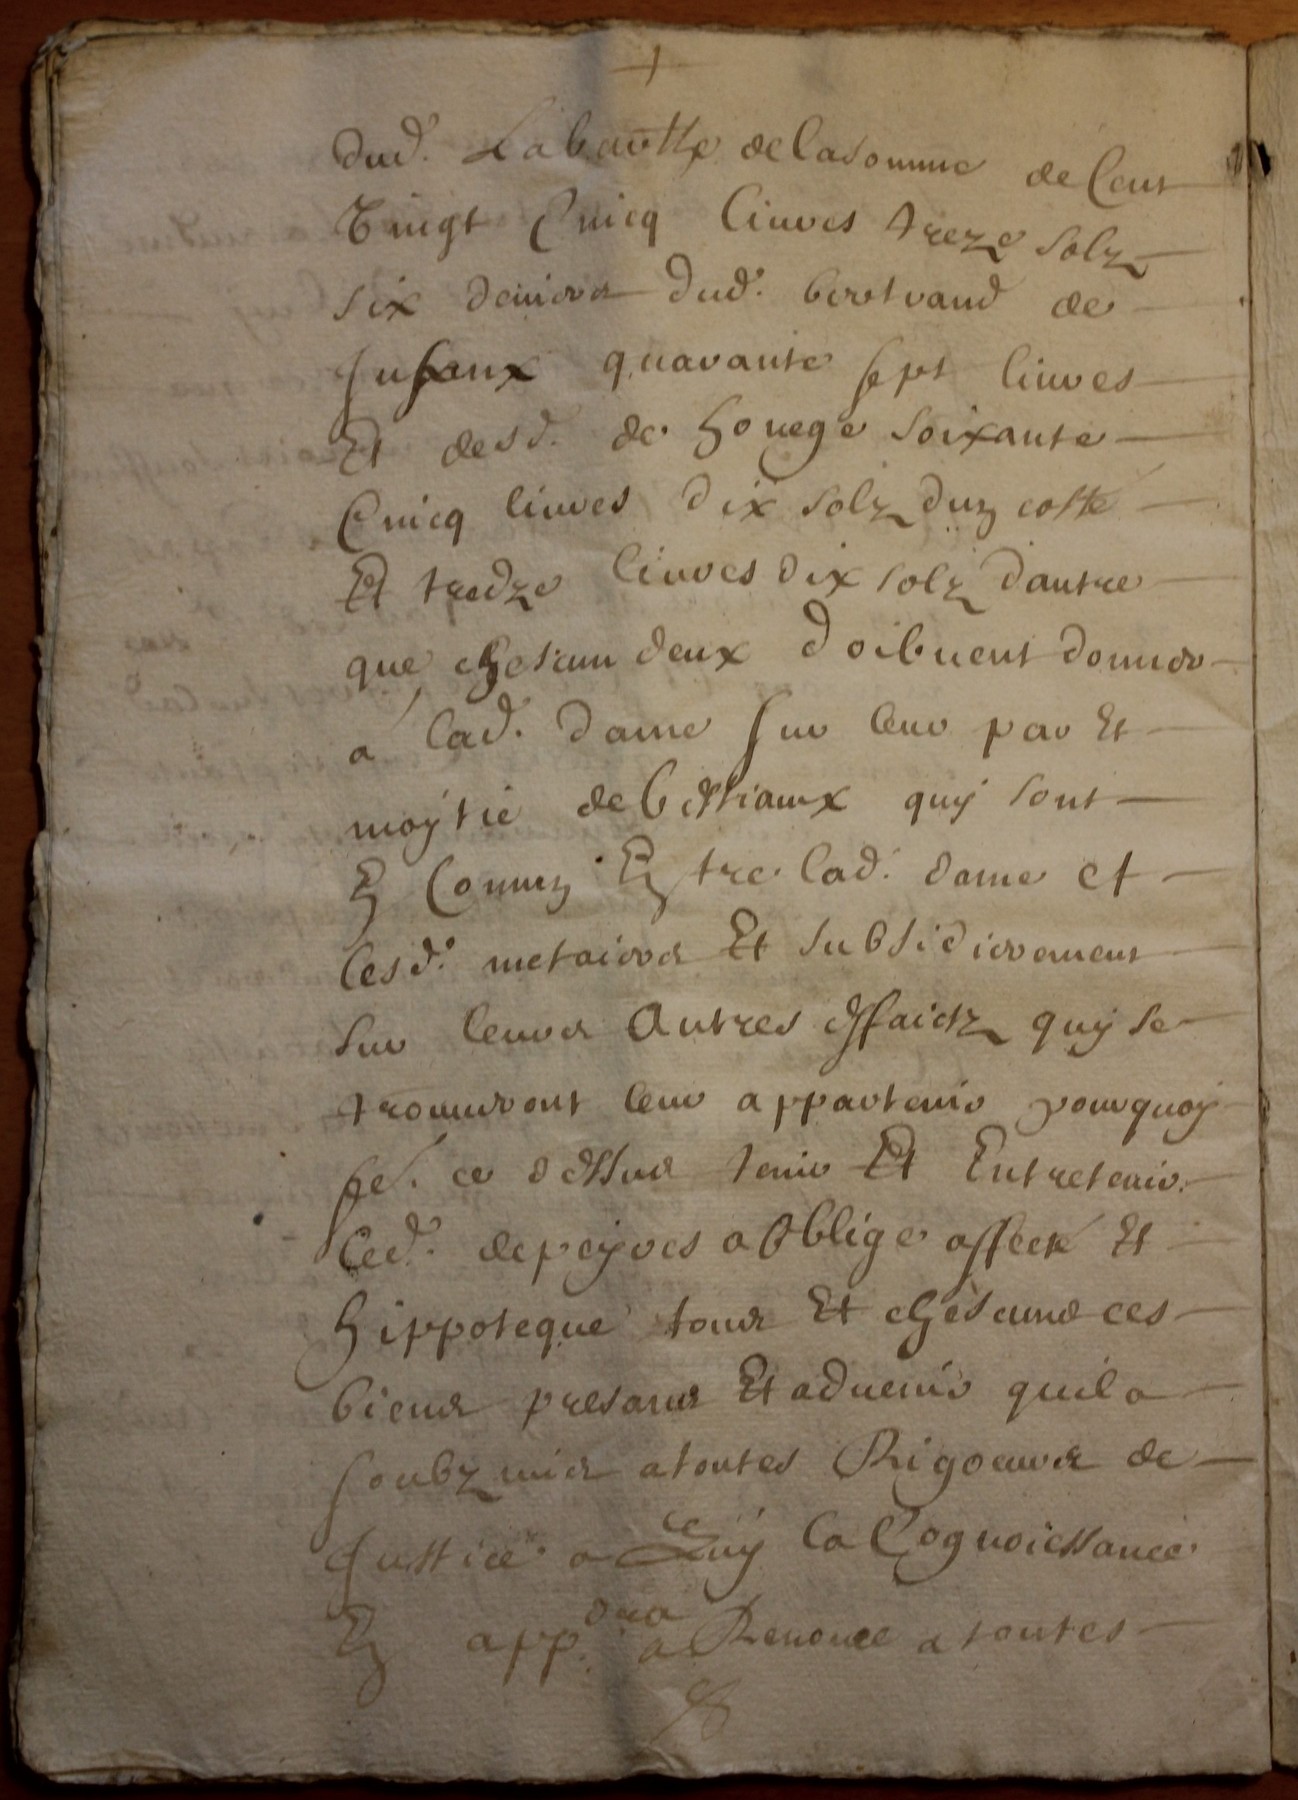 dud. Labautte de la somme de Cent
Vingt Cincq liures treze solz
six deniers dud. bertrand de
quarante sept liures
Et desd. de houege soixante
Cincq liures dix solz dun costé
Et tredze liures dix solz dautre
que chescun deux doibuent donner
a lad. dame sur leur par Et
moÿtié de bestiaux quÿ sont
En Commun Entre lad. dame et
lesd. metaiers Et subsidierement
sur leurs autres effaictz quÿ se
trouueront leur appartenir pourquoÿ
ce dessus tenir Et Entretenir
led. depeÿres a obligé affecté Et
hippotequé tous Et chescuns ces
biens presans Et aduenir quil a
soubzmis a toutes Rigoeurs de
Justice a quÿ la Cognoissance
En app.dra a Renoncé a toutes